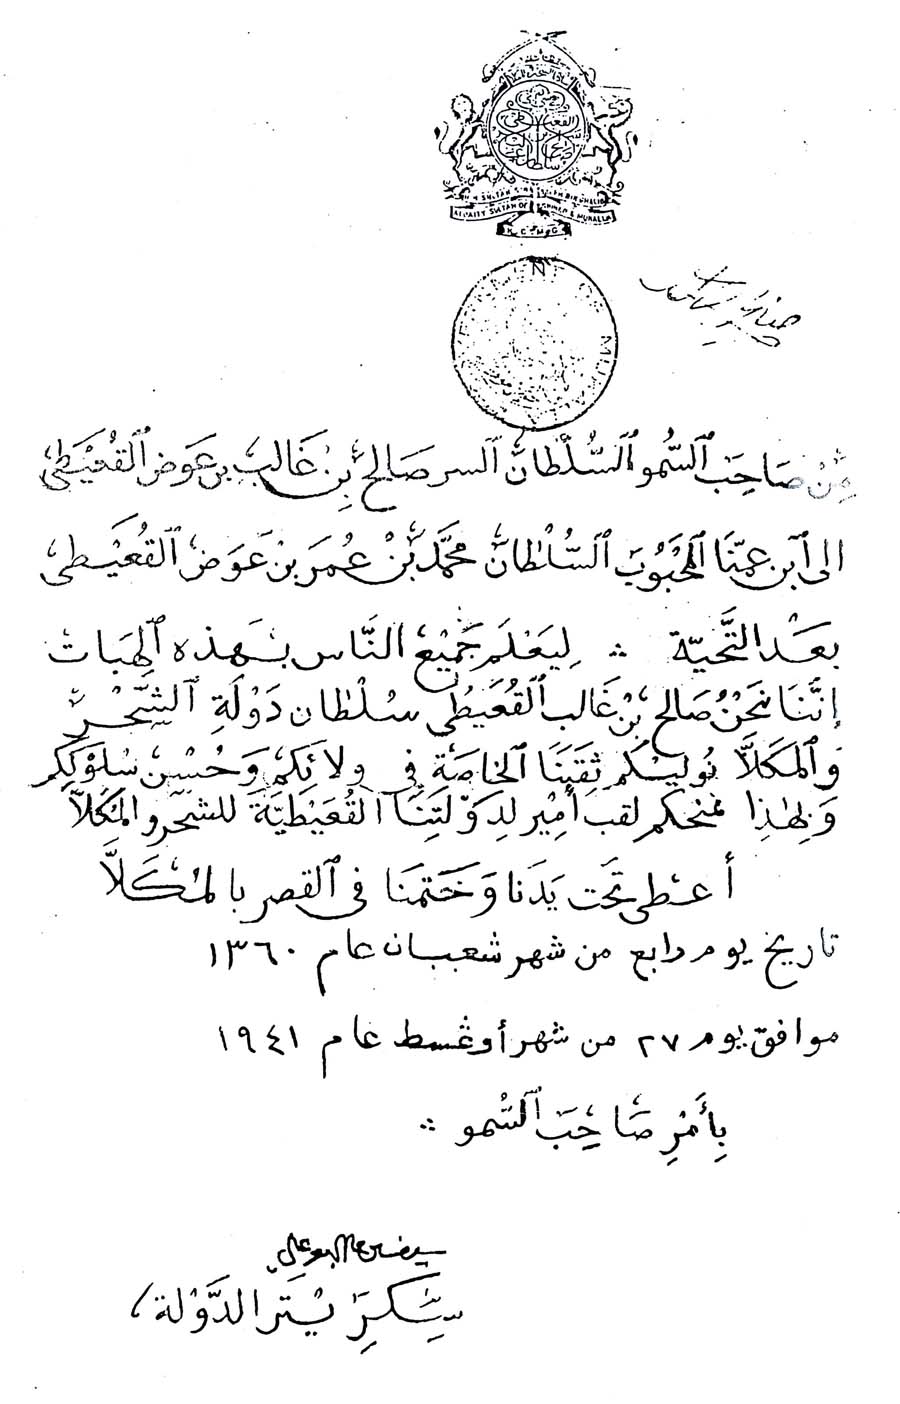 H.H. SULTAN SIR SALEH BIN GHALIB
ALQUAITY SULTAN OF SHIHR & MUKALLA
K.C.M.G
GOVERNMENT OF MUKALLA
مِنْ صَاحِبَ ٱلسُّمو ٱلسُّلْطَانُ ٱلسر صَالح بِنْ غَالب بن عَوَض ٱلقُعَيْطِي
الى ٱبن عمّنَا ٱلمَحْبُوبَ ٱلسُّلْطَانْ محمَّد بْنْ عُمَر بن عَوَضْ ٱلقُعَيْطى
بعَدْ التَّحيّة ∴ لِيَعْلَم جَميْع النَّاس بهَذه ٱلهِبَات
إنَّنَا نحَنْ صَالح بِنْ غَالب ٱلقُعَيْطِي سُلْطَان دَوْلَةِ ٱلشِّحْر
وَٱلمكَلاَّ نُوليْكم ثِقَتِنَا ٱلخاصَة فِي ولائكم وَحُسْن سُلوْككم
وَبهٰذِا نمنحكم لقب أمِيْر لدِوَلَتِنَا القُعَيْطِيَّة للشحر والمكَلاَّ
أعطى تحَت يَدَنا وَخَتمنَا فى ٱلقصر بالمُكَلاَّ
تاريخ يوم رابع من شهر شعبان عام ١٣٦٠
موافق يوم ٢٧ من شهر أوغسط عام ١٩٤١
بِأمَرِ صَاحِبَ ٱلسُّمو ∴
سيف بن البوعلي
سِكرِتَيْر الدَّوْلة،